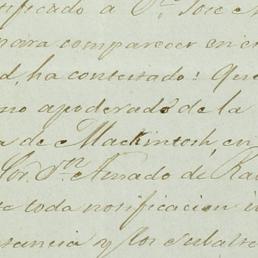 tificado a Dn. José
para comparecer en
d, ha contestado: Que
mo apoderado de la
a de Mackintosh, en
Sor. Dn. Amado de
toda notificacion
tancia y los